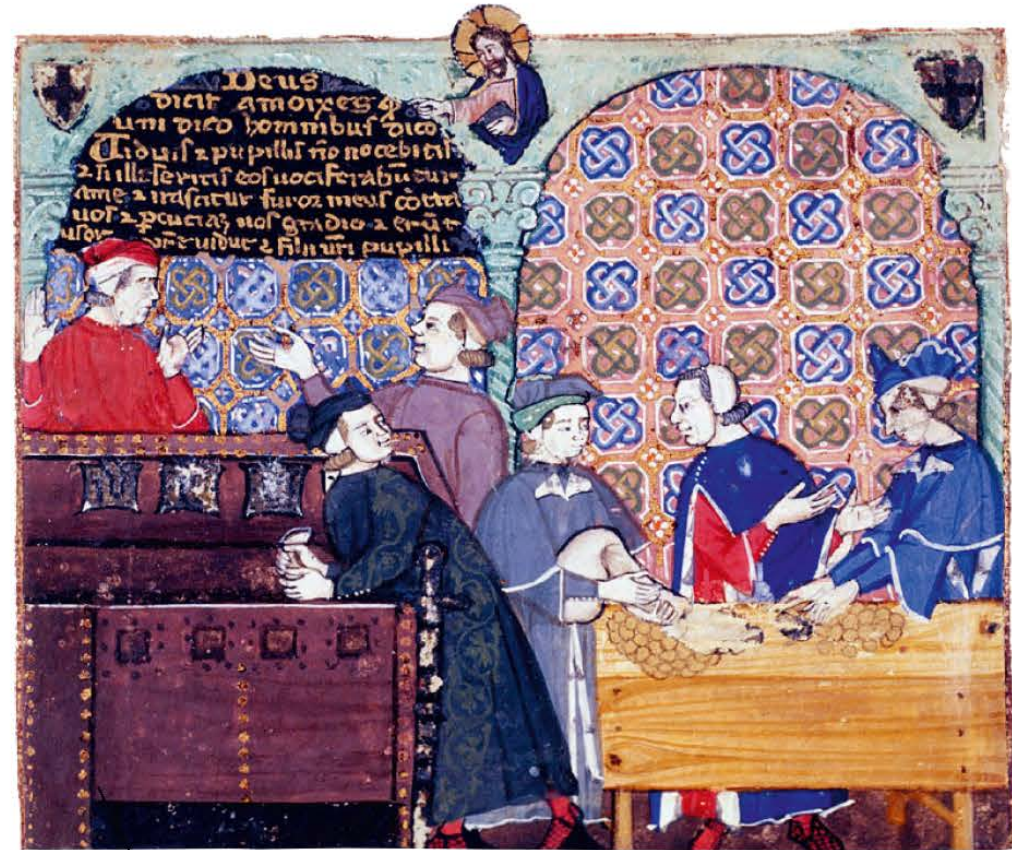 Deus
dicit amoixes q̄
uni dico hominibus dico
Uiduis ⁊ pupillis nō nocebitis
⁊ si illeseritis eos uociferabūtur
ame ⁊ irascitur furor meus cōtra
uos ⁊ ꝑcuciaꝫ uos gladio ⁊ erūt
uidue ⁊ filii uri pupilli